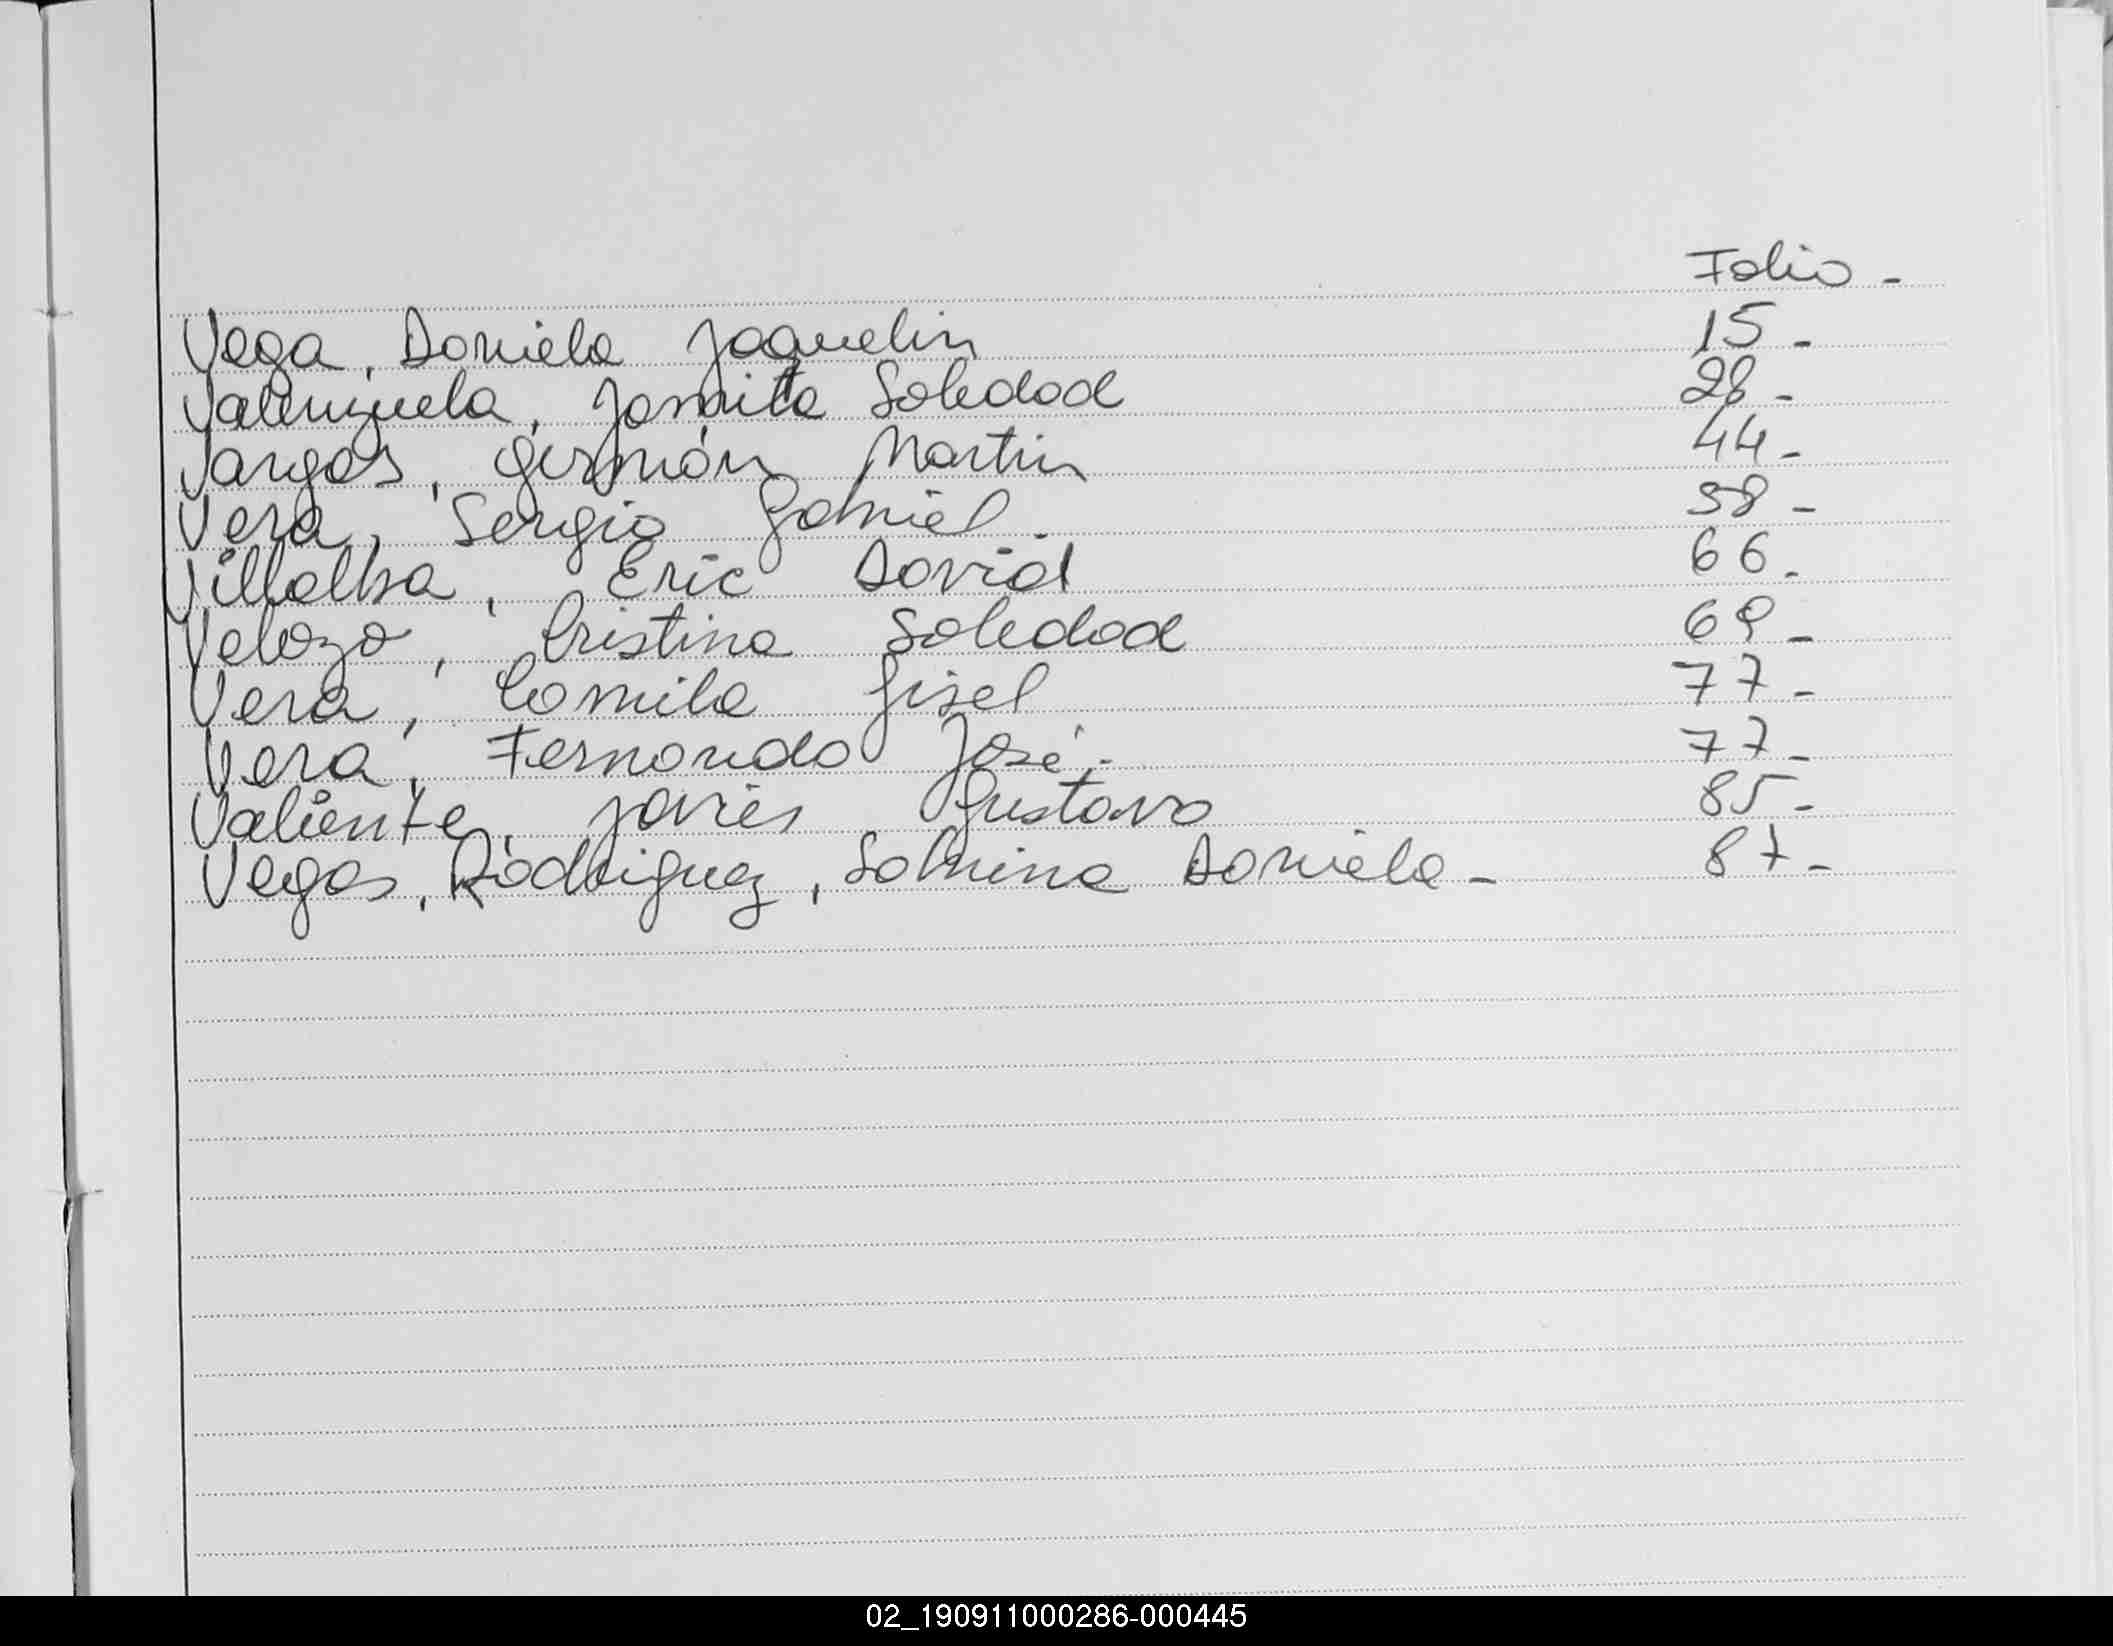 Folio -
Vega, Daniela Jaquelin 15 -
Valenzuela, Soledad 28 -
Vargas, Germán Martin 44 -
Vera, Sergio Gabriel. 58 -
Villalba, Eric David 66 -
Velozo, Cristina Soledad 69 -
Vera, Camila Gisel 77 -
Vera, Fernando José.- 77 -
Valiente, Javier Gustavo 85 -
Vegas, Rodriguez, Sabrina Daniela - 87 -
02_190911000286-000445